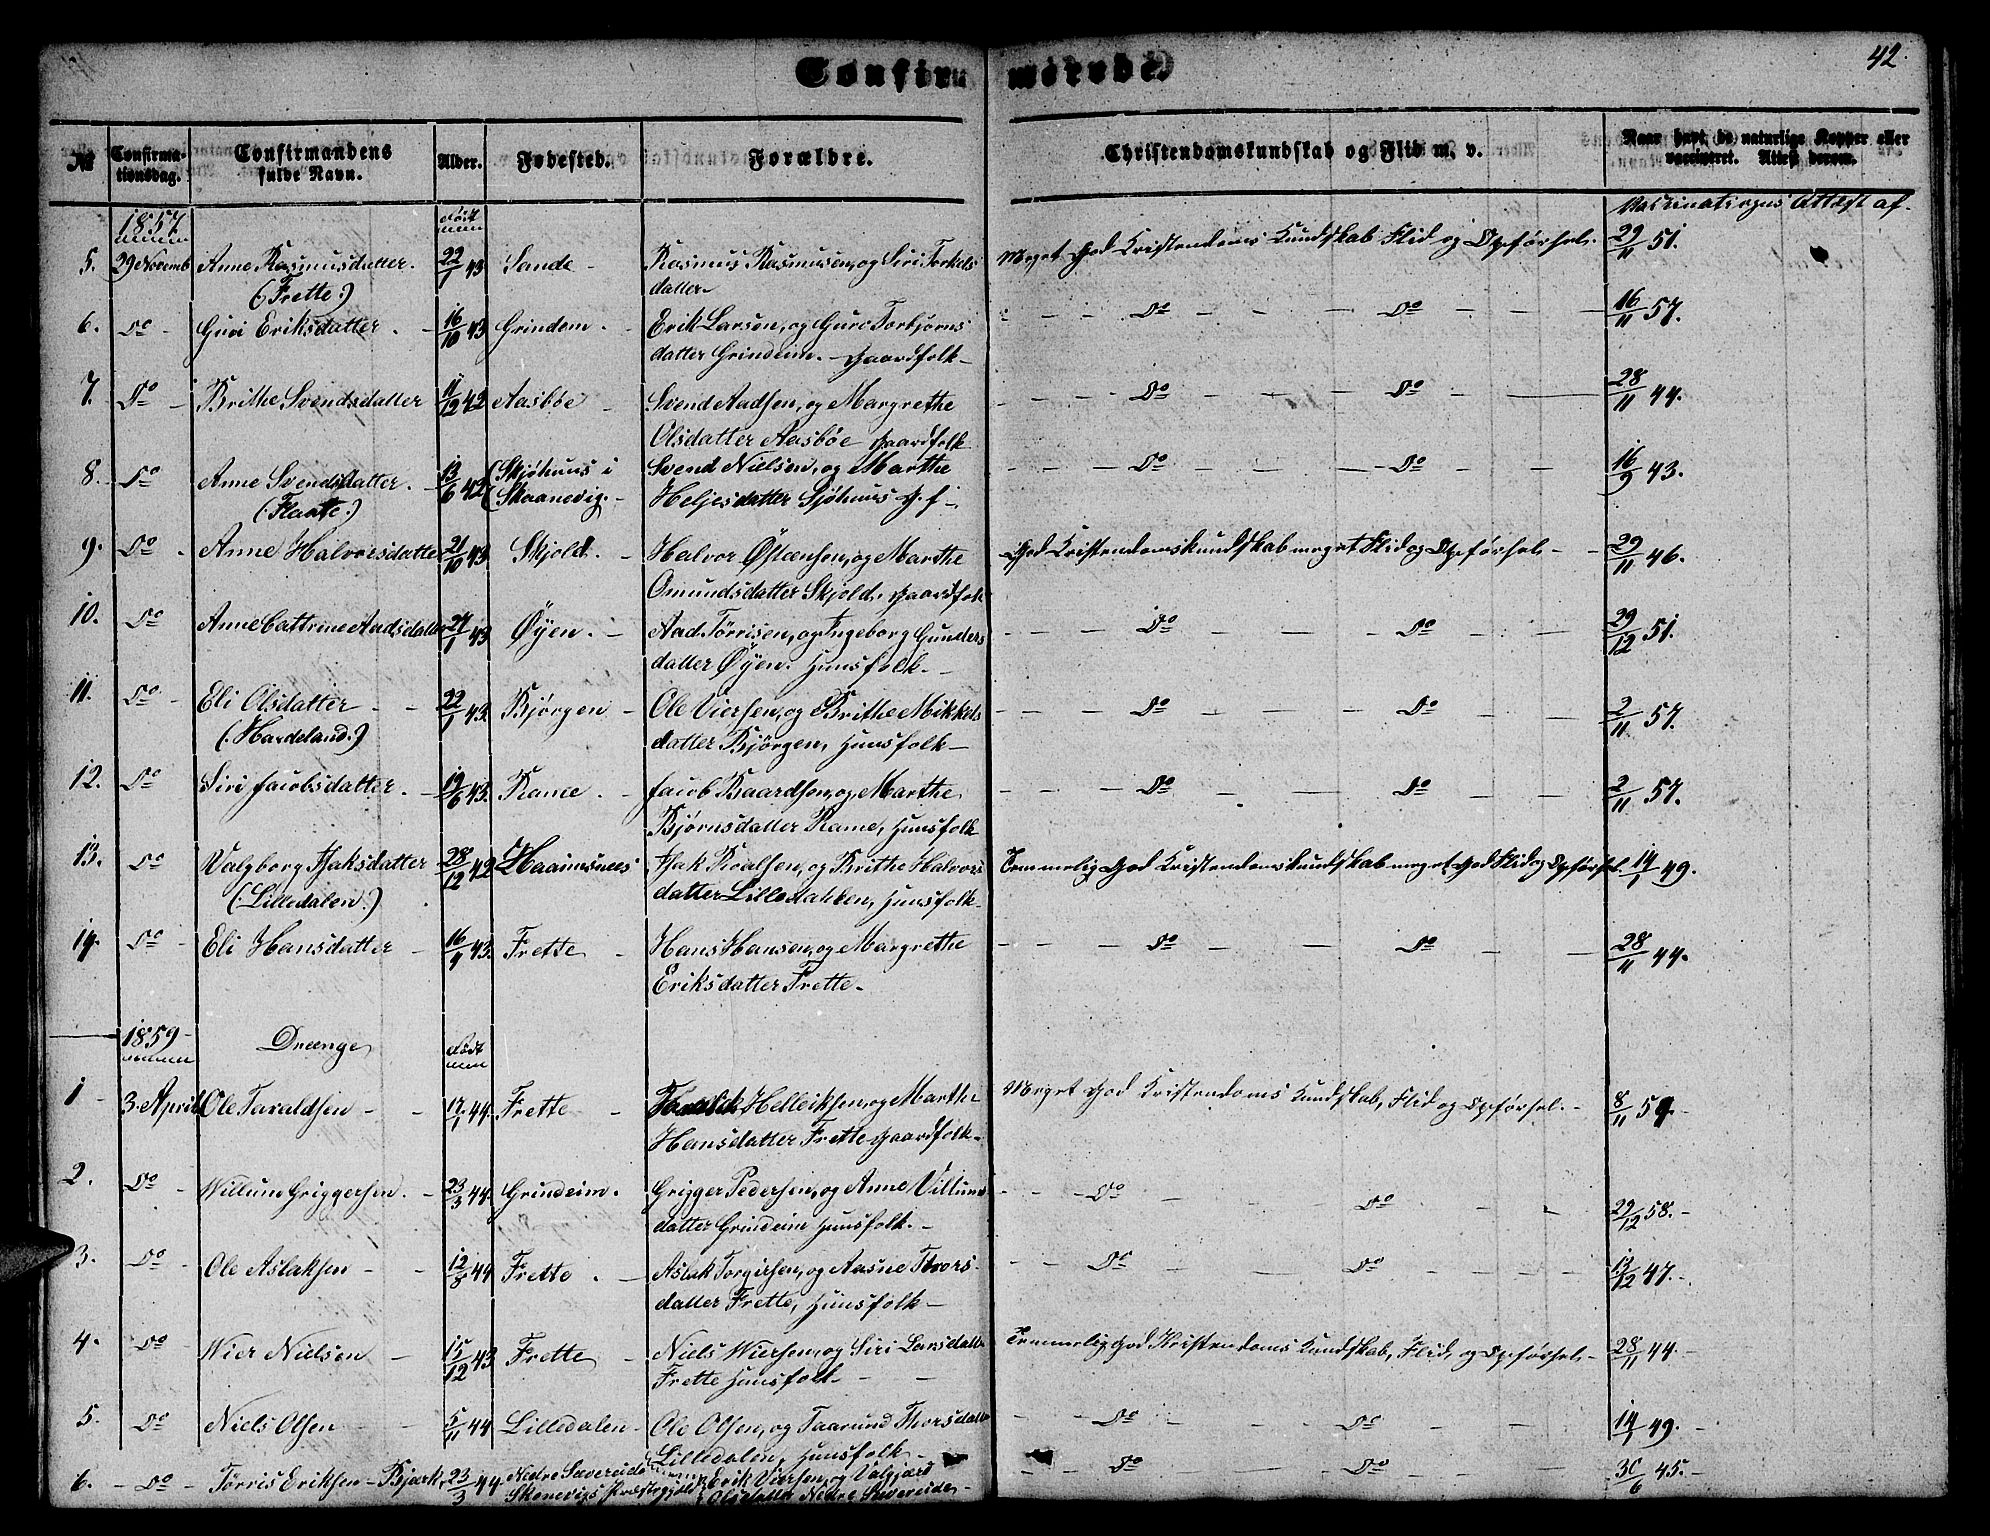 42.
Confirmerede.
№ Confirmationsdag. Confirmandens fulde Navn. Alder. Fødested. Forældre. Christendomskundskab og Flid m. v. Naar havt de naturlige Kopper eller vaccineret. Attest derom.
1857 født Vaksinations Attest af
5. 29 Novemb Anne Rasmusdatter. 22/1 43 Sande - Rasmus Rasmusen, og Siri Torkels Meget God Kristendoms Kundskab Flid og Opførsel. 29/11 51.
(Frette.) datter
6. Do - Guri Eriksdatter. - 16/10 43 Grindem. - Erik Larsen, og Guro Torbjørns - Do - Do - 16/11 57.
datter Grindeim. - Gaardfolk -
7. Do - Brithe Svendsdatter 11/12 42 Aasbøe - Svend Aadsen, og Margrethe - Do - Do - 28/11 44.
Olsdatter Aasbøe Gaardfolk
8. Do Anne Svendsdatter. - 13/6 42 (Skjøhuus i Svend Nielsen, og Marthe - Do - Do - 16/9 43.
(Flaate.) (Skaanevig. - Heljesdatter Sjøhuus G. f -
9. Do. Anne Halvorsdatter 21/10 43 Skjold. - Halvor Østensen, og Marthe God Kristendomskundskab meget Flid og Opførsel - 29/11 46.
Omundsdatter Skjold, Gaardfolk
10. Do Anne Cattrine Aadsdatter 27/1 43 Øyen. - Aad Tørrisen, og Ingeborg Gunders - Do - Do - 29/12 51.
datter Øyen. Huusfolk. -
11. Do - Eli Olsdatter - - 22/1 43. Bjørgen - Ole Viersen, og Brithe Mikkels - Do - Do - 2/11 57.
(Hardeland.) datter Bjørgen, Huusfolk -
12. Do - Siri Jacobsdatter. - 19/6 43. Ramee. - Jacob Baardsen, og Marthe - Do - Do - 2/11 57.
Bjørnsdatter Rame, Huusfolk
13. Do Valgborg Isaksdatter 28/12 42 Haaimsnees Isak Roalsen, og Brithe Halvors Temmelig God Kristendomskundskab meget God Flid og Opførsel. 14/1 49.
(Lilledalen.) datter Lilledahlen, Huusfolk -
14. Do - Eli Hansdatter - 16/4 43. Frette - Hans Hansen, og Margrethe - Do - Do - 28/11 44.
Eriksdatter Frette. -
1859 Drænge født
1 - 3. April Ole Taraldsen - - 17/1 44. Frette - Tarald Helleiksen, og Marthe Meget God Kristendoms Kundskab, Flid og Opførsel. - 8/11 59. -
Hansdatter Frette Gaardfolk -
2. Do - Willum Griggersen. - 23/3 44. Grindeim. Grigger Pedersen, og Anne Villums - Do - Do - 29/12 58. -
datter Grindeim Huusfolk. -
3. Do - Ole Aslaksen - - 12/8 44 Frette. - Aslak Torgiersen, og Aasne Thors - Do - Do - 13/12 47. -
datter Frette, Huusfolk -
4. Do Wier Nielsen - 15/12 43 Frette - Niels Wiersen, og Siri Larsdatter Temmelig God Kristendoms Kundskab, Flid, og Opførsel. - 28/11 44. -
Frette Huusfolk - -
5. Do Niels Olsen - 5/11 44 Lilledalen - Ole Olsen, og Taarund Thorsdatter - Do - Do - 14/1 49. -
Lilledalen, Huusfolk -
6. - Do - Tørris Eriksen - Bjark, 23/3 44. Nedre Sævereide Erik Viersen, og Valgjærd - Do - Do - 30/6 45. -
Skonevigs Præstegjæld Olsdatter Nedre Sævereide -